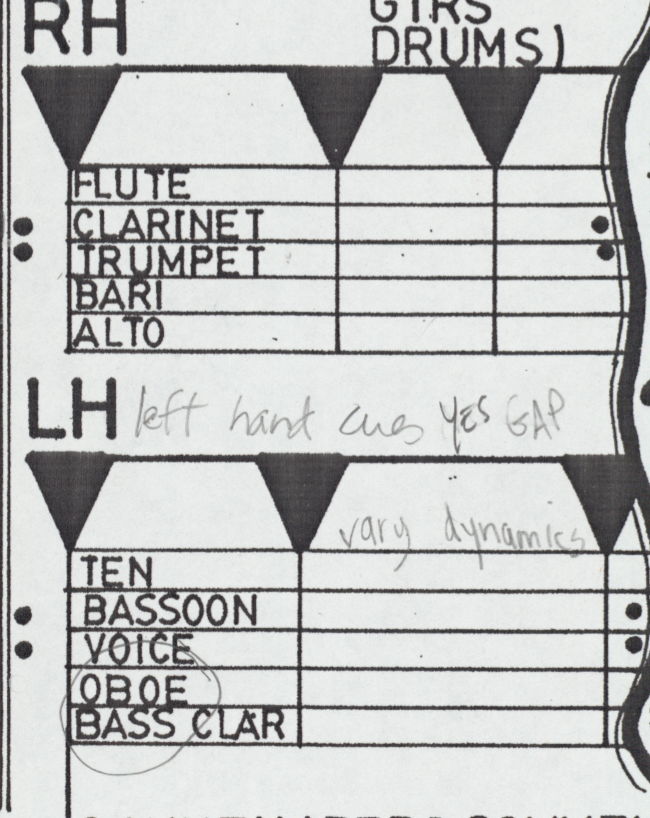 RH
GTRS
DRUMS)
FLUTE
CLARINET
TRUMPET
BARI
ALTO
LH left hand cues yes GAP
vary dynamics
TEN
BASSOON
VOICE
OBOE
BASS CLAR